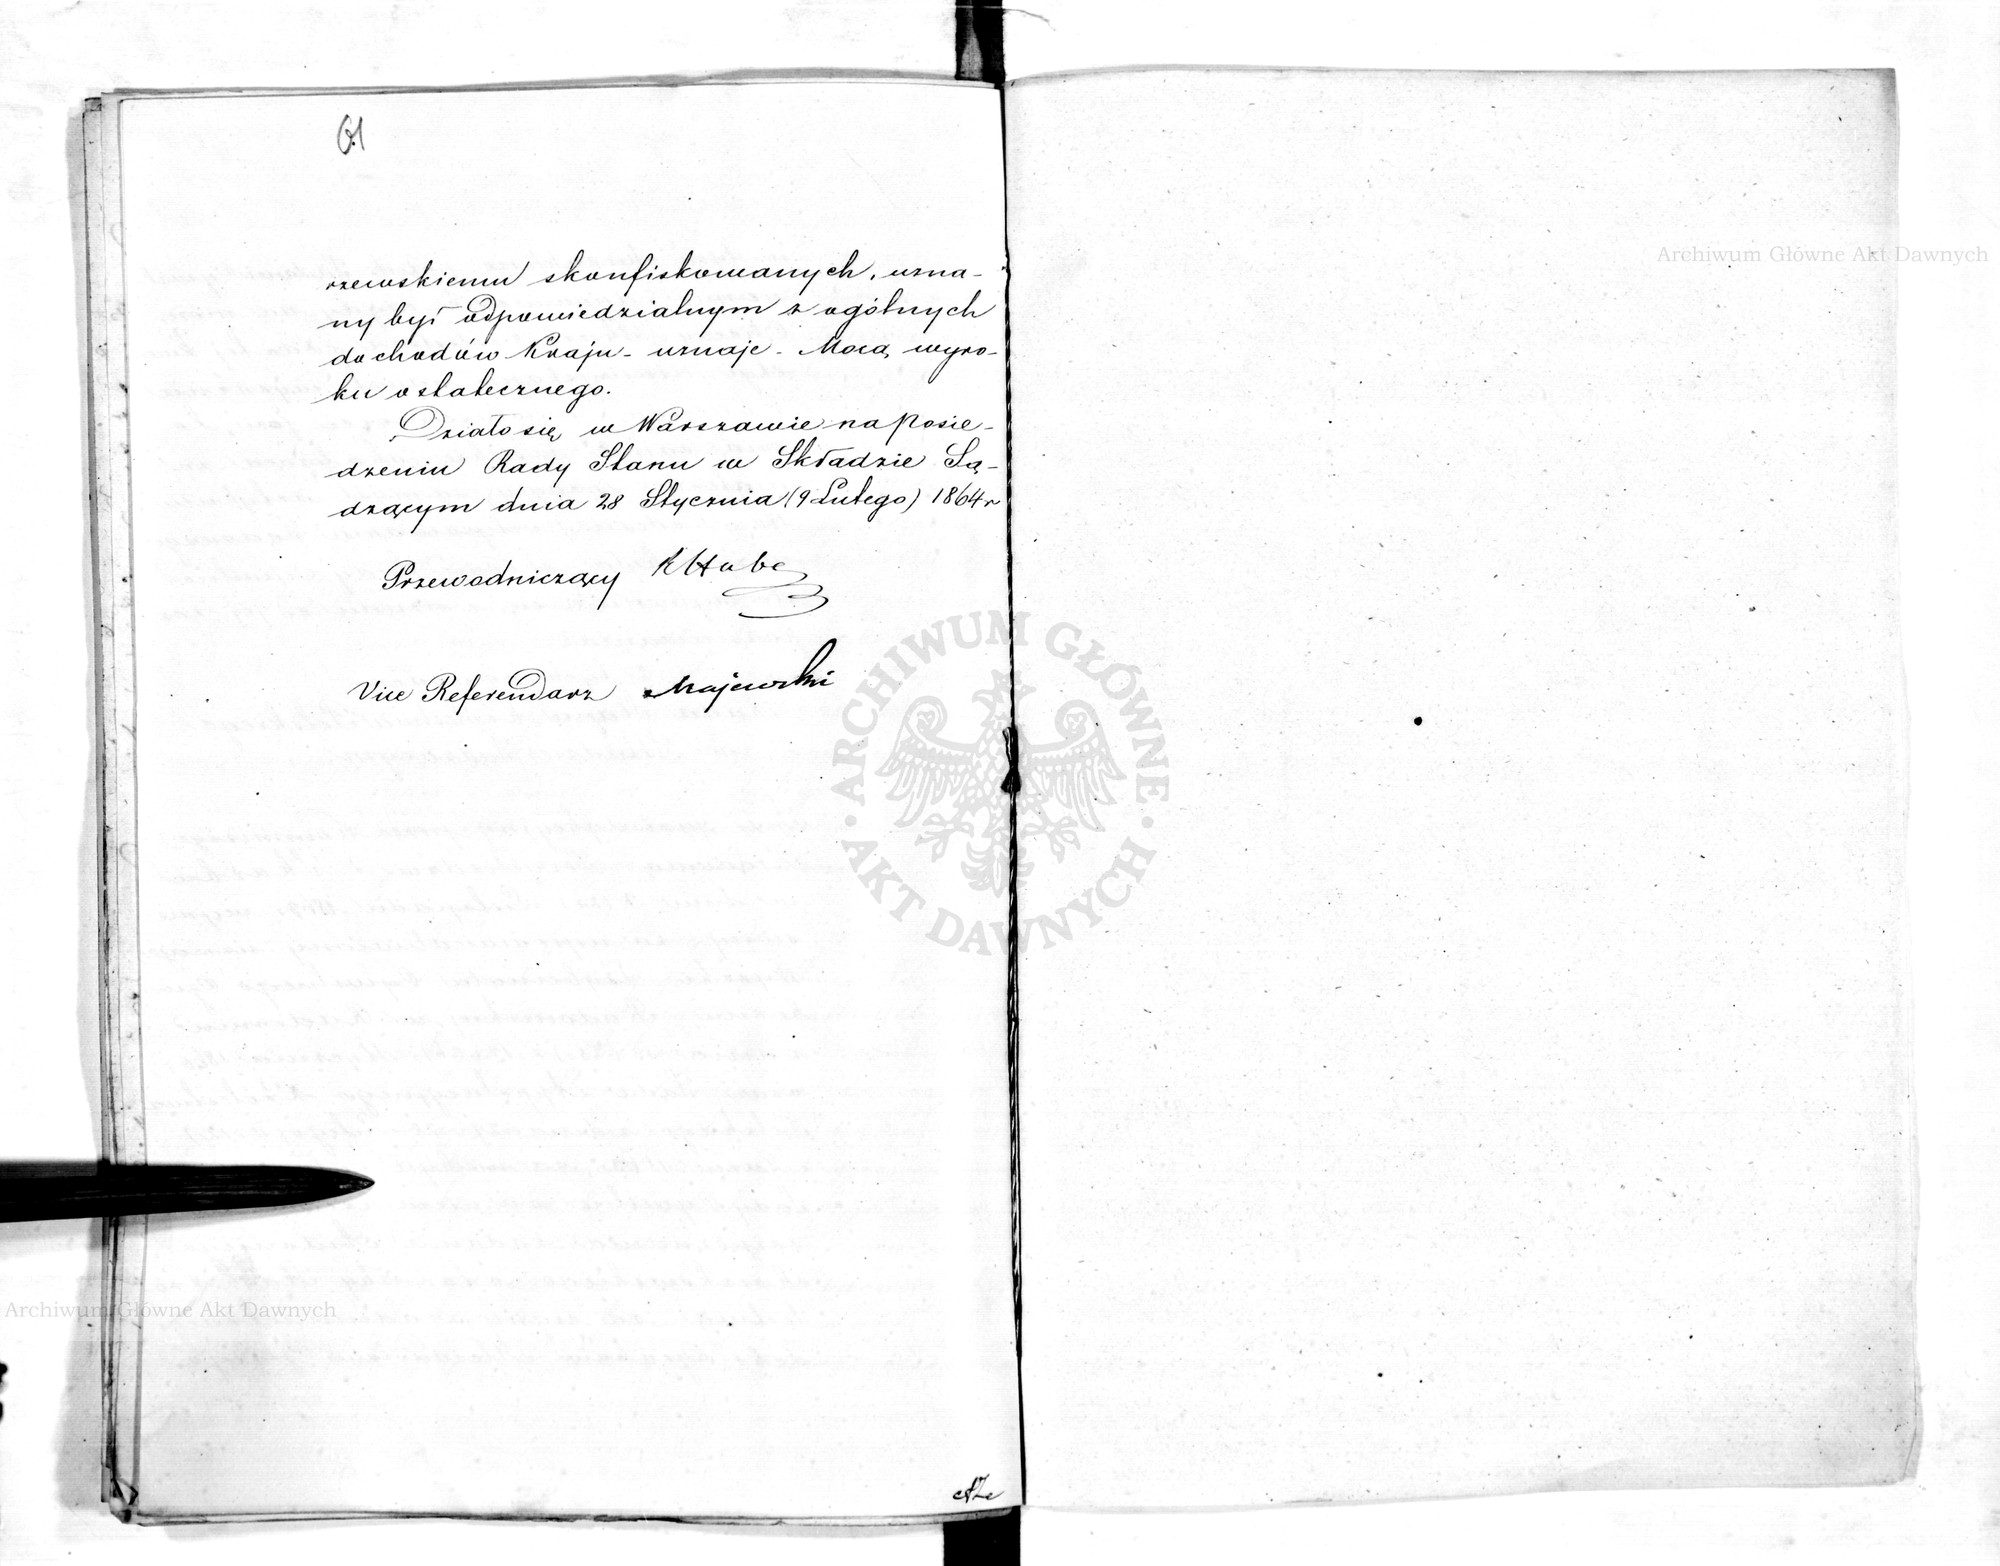 61
rzewskiemu skonfiskowanych, uzna-
ny był odpowiedzialnym z ogólnych
dochodów Kraju - uznaje - Mocą wyro-
ku ostatecznego.
Działo się w Warszawie na Posie-
dzeniu Rady Stanu w Składzie Są-
dzącym dnia 28 Stycznia (9 Lutego) 1864 r
Przewodniczący RHube
Vice Referendarz Majewski
Archiwum Główne Akt Dawnych
ARCHIWUM GŁÓWNE AKT DAWNYCH
Archiwum Główne Akt Dawnych